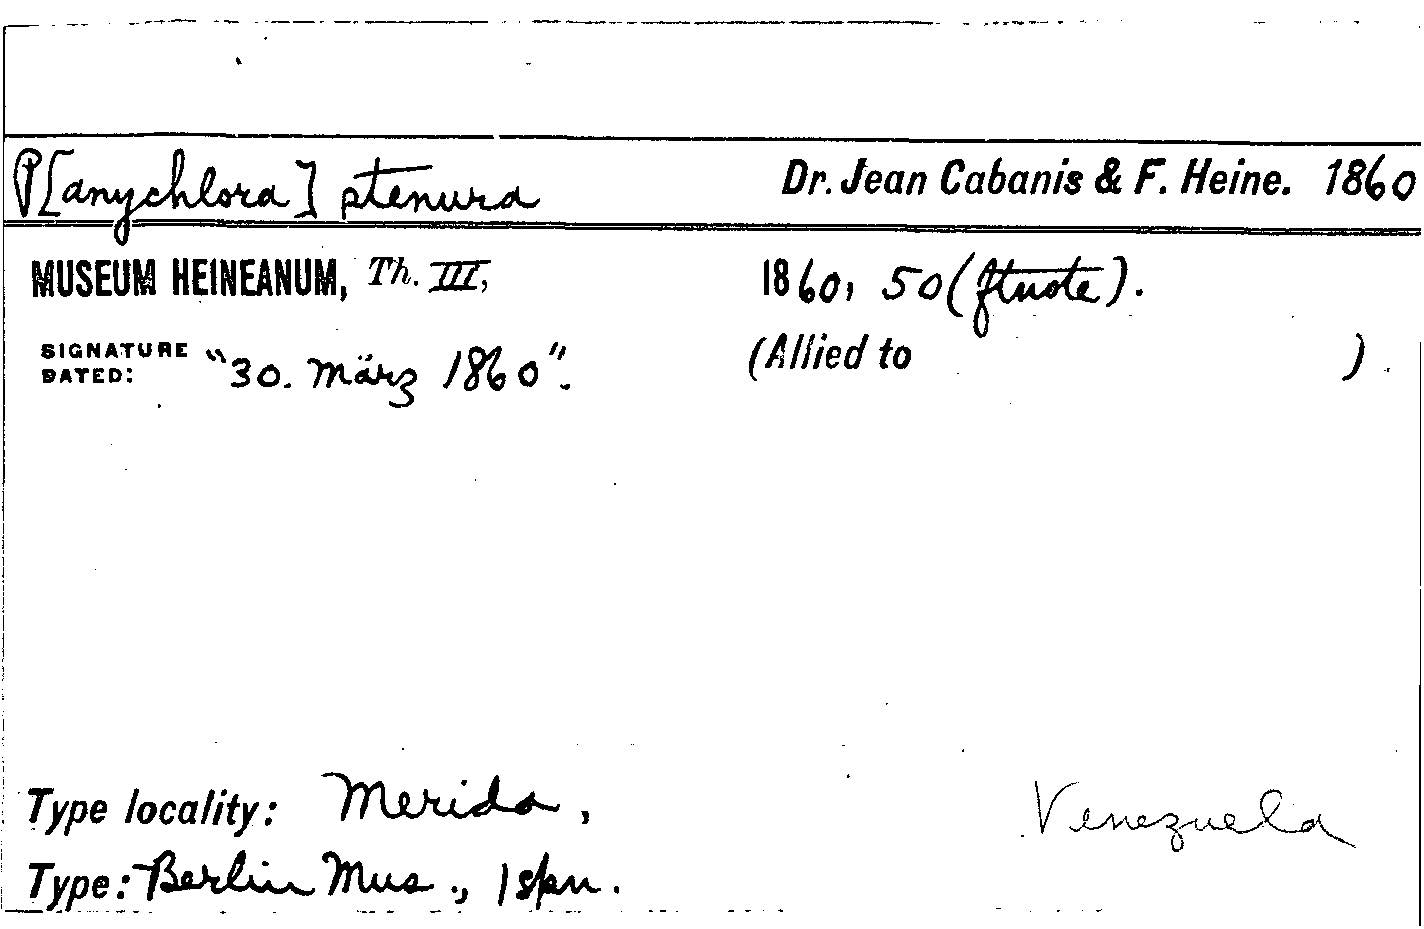 P[anychlora] stenura Dr. Jean Cabanis & F. Heine. 1860
MUSEUM HEINEANUM, Th. III, 1860, 50 (ftnote).
SIGNATURE DATED: "30. März 1860". (Allied to ).
Type locality: Merida, Venezuela
Type: Berlin Mus., 1 spn.